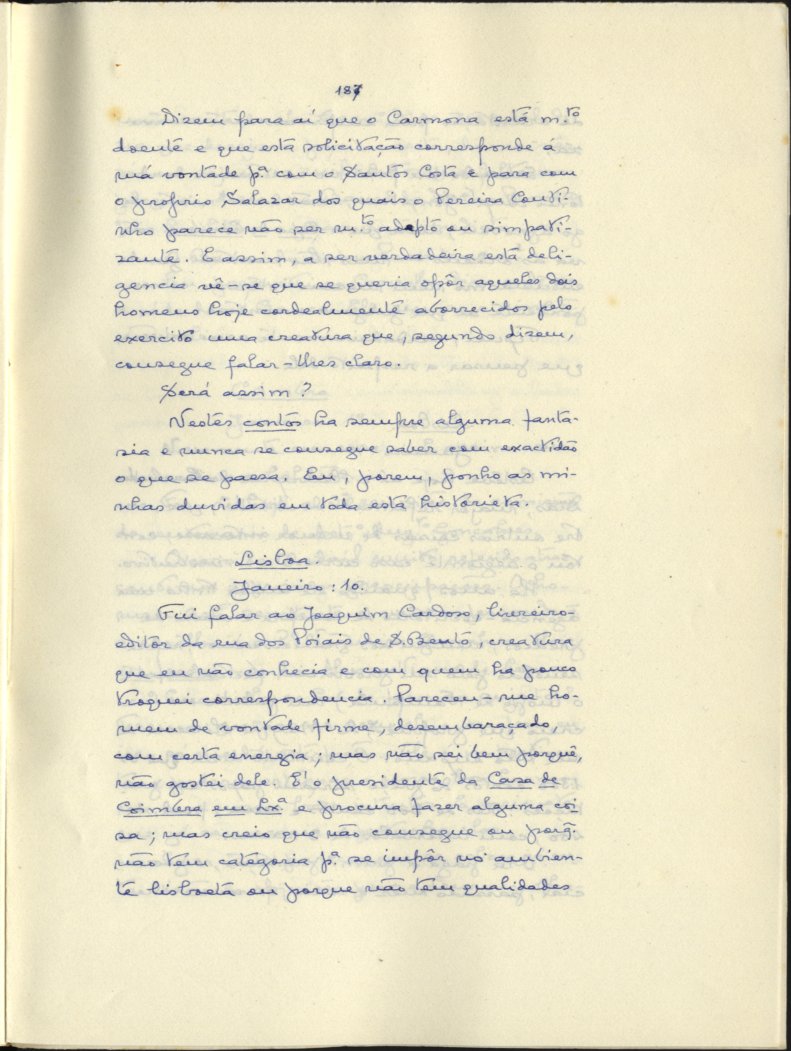 187
Dizem para aí que o Carmona está m.to
doente e que esta solicitação corresponde á
má vontade p.a com o Santos Costa e para com
o proprio Salazar dos quais o Pereira Couti-
nho parece não ser m.to adepto ou simpati-
sante. E assim, a ser verdadeira esta deli-
gencia vê-se que se queria opôr aqueles dois
homens hoje cordealmente aborrecidos pelo
exercito uma creatura que, segundo dizem,
consegue falar-lhes claro.
Será assim?
Nestes contos ha sempre alguma fanta-
sia e nunca se consegue saber com exactidão
o que se passa. Eu, porem, ponho as mi-
nhas duvidas em toda esta historieta.
Lisboa.
Janeiro: 10.
Fui falar ao Joaquim Cardoso, livreiro-
editor da rua dos Poiais de S. Bento, creatura
que eu não conhecia e com quem ha pouco
troquei correspondencia. Pareceu-me ho-
mem de vontade firme, desembaraçado,
com certa energia; mas não sei bem porquê,
não gostei dele. E' o presidente da Casa de
Coimbra em Lx.a e procura fazer alguma coi
sa; mas creio que não consegue ou porq.
não tem categoria p.a se impôr no ambien-
te lisboeta ou porque não tem qualidades